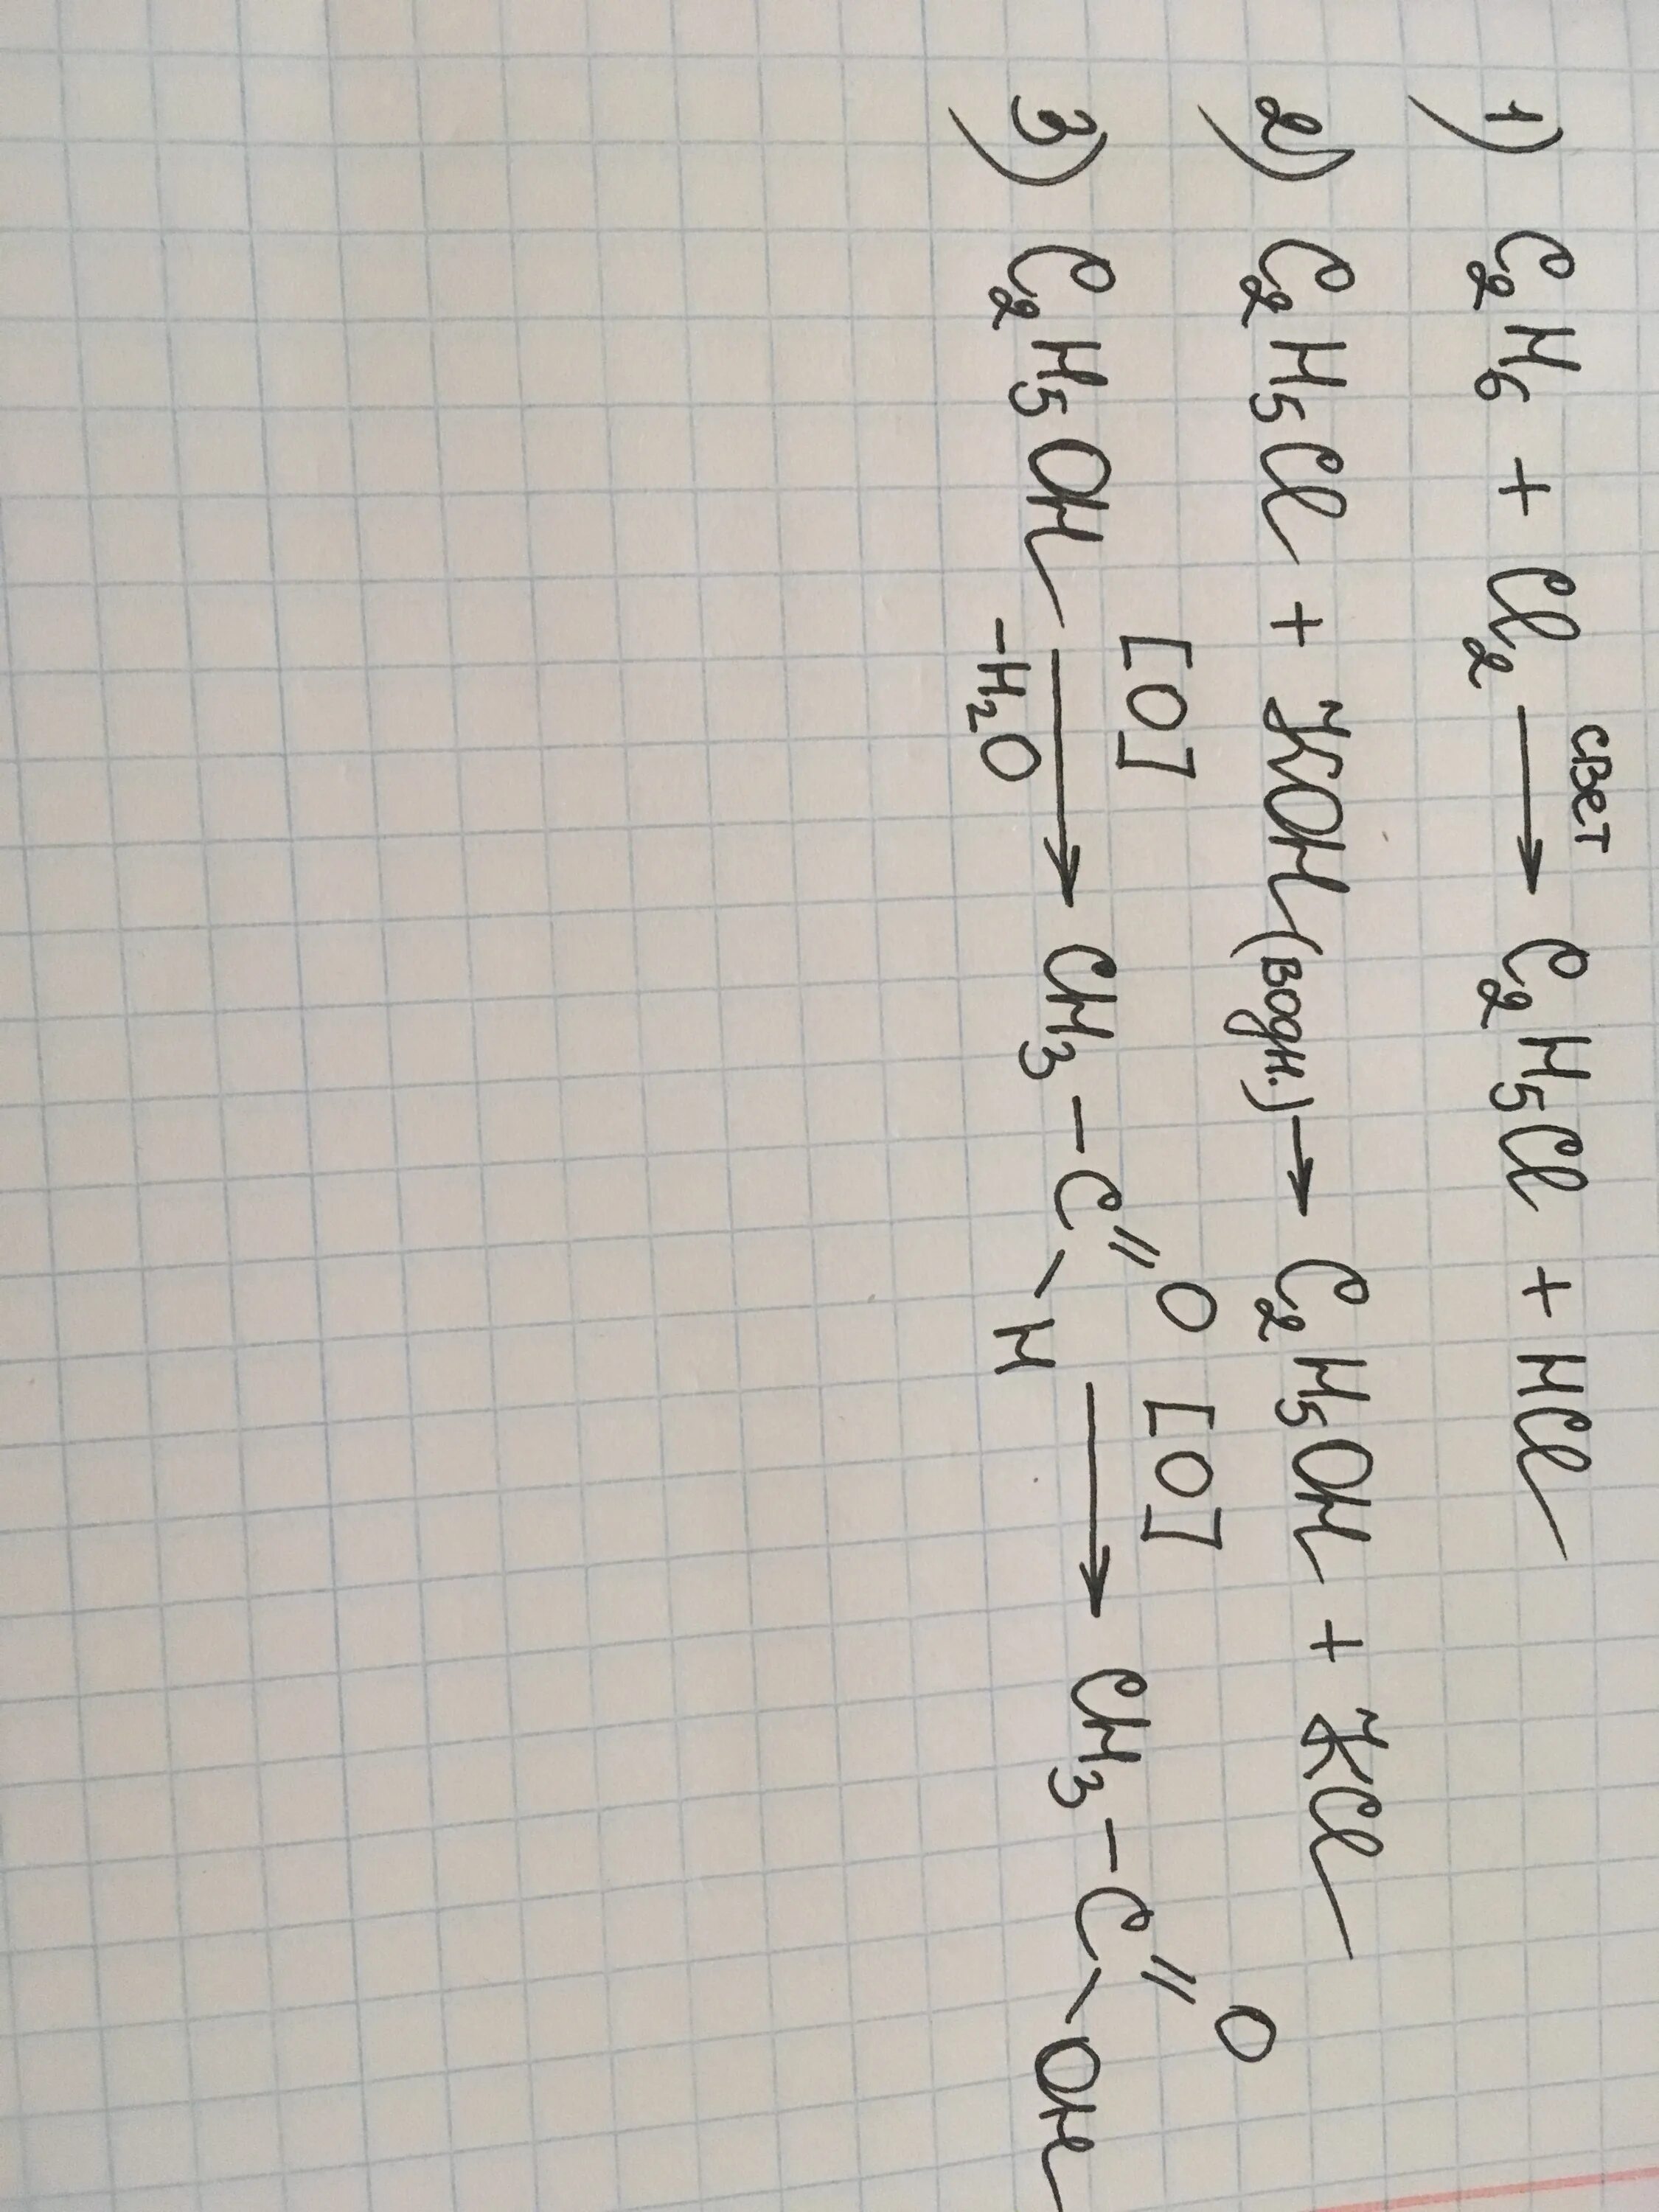 1) C₂H₆ + Cl₂ свет⟶ C₂H₅Cl + HCl
2) C₂H₅Cl + KOH(водн.) → C₂H₅OH + KCl
[O] [O]
3) C₂H₅OH ⟶ CH₃ – C // O \ H ⟶ CH₃ – C // O \ OH
–H₂O